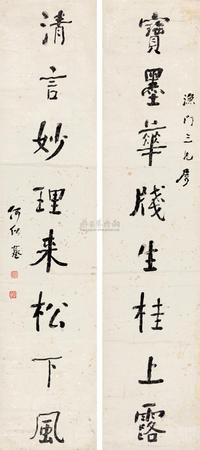 寶墨華牋生桂上露
三兄屬
清言妙理来松下風
何紹基